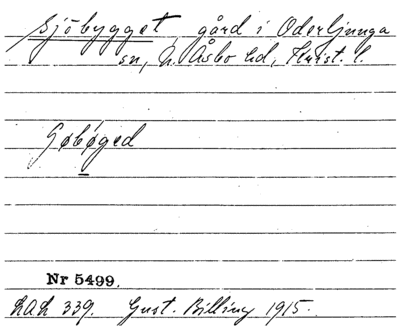 Sjöbygget, gård i Oderljunga
sn, N. Åsbo hd, Krist. l.
Nr 5499.
LAL 339. Gust. Billing 1915.